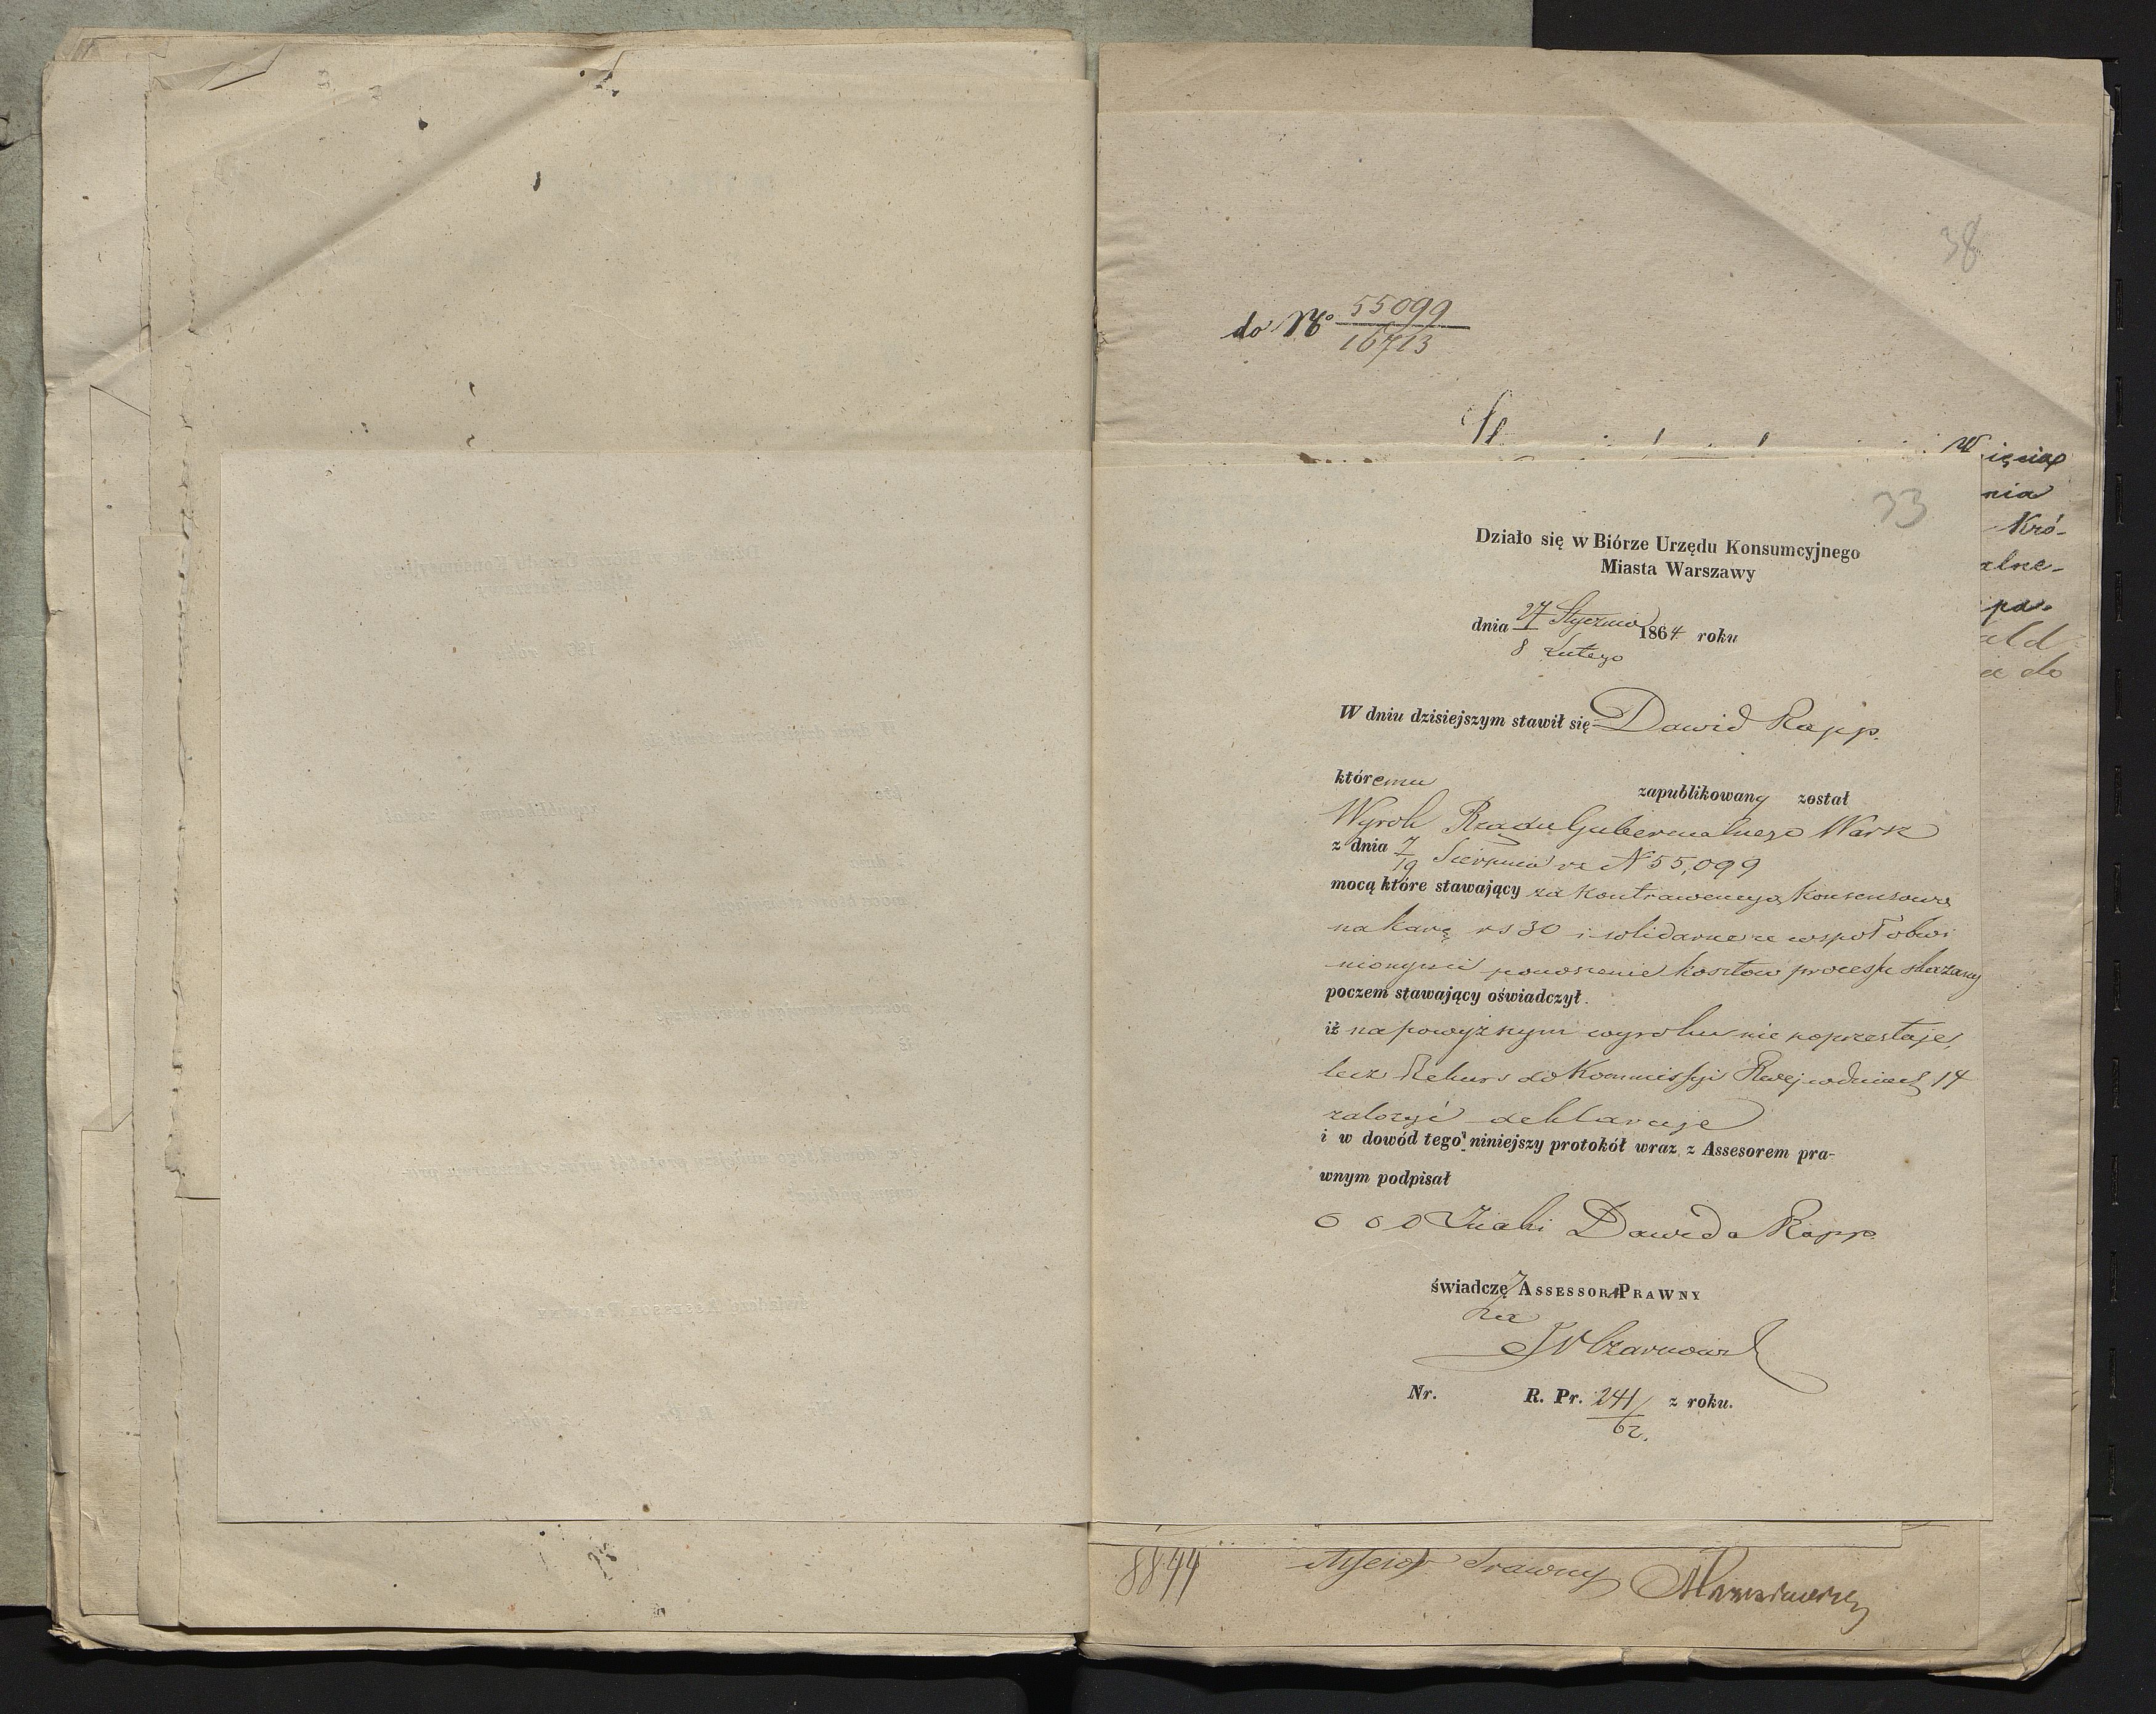 38
do No 55099
16713
W
ięciop
nia
Kró-
alne-
pa-
ald
a do
33
Działo się w Biórze Urzędu Konsumcyjnego
Miasta Warszawy
dnia 27 Stycznia 1864 roku
8 Lutego
W dniu dzisiejszym stawił się Dawid Rapp.
któremu zapublikowany został
Wyrok Rządu Gubernialnego Warsz
z dnia 7/19 Sierpnia rz N 55,099
mocą które stawający za Kontrawencyą Konsensową
na karę rs 30 i solidarne ze wspołobwi
nionymi ponoszenie kosztow processu skazany
poczem stawający oświadczył.
iż na powyższym wyroku nie poprzestaje,
lecz Rekurs do Kommissyi w dniach 14
założyć deklaruje
i w dowód tego niniejszy protokół wraz z Assesorem pra-
wnym podpisał
o o o Znaki Dawida Rapp
świadczę Assessor Prawny
za
Nr. R. Pr. 241/62. z roku.
8844 Assesor Prawny